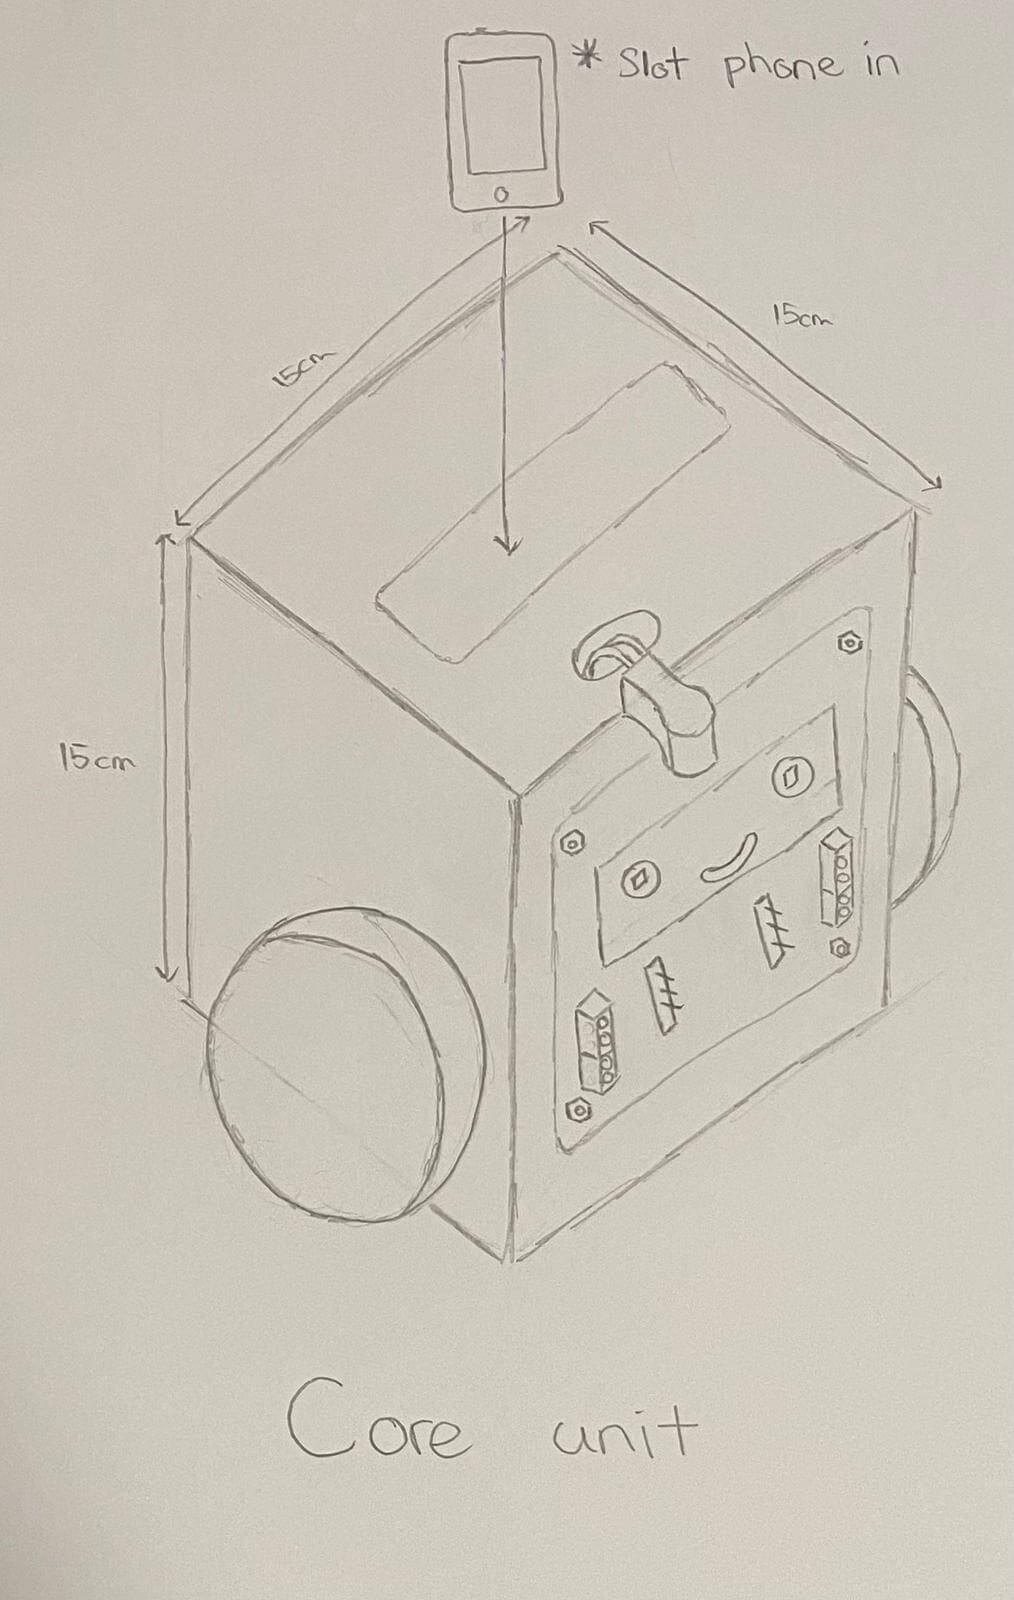 * Slot phone in
15cm
15cm
15cm
Core unit